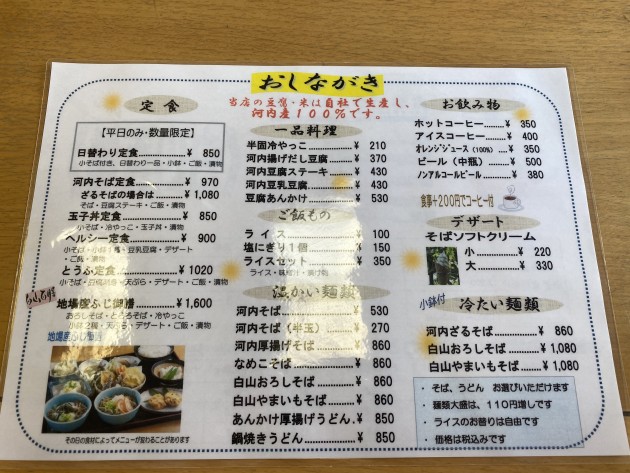 おしながき
当店の豆腐・米は自社で生産し、
河内産100%です。
定食
【平日のみ・数量限定】
日替わり定食..............¥ 850
小そば付き、日替わり一品・小鉢・ご飯・漬物
河内そば定食..............¥ 970
ざるそばの場合は........¥ 1,080
そば・豆腐ステーキ・ご飯・漬物
玉子丼定食..............¥ 850
小そば・冷やっこ・玉子丼・漬物
ヘルシー定食..............¥ 900
小そば・小鉢1種・豆乳豆腐・デザート
・ご飯・漬物
とうふ定食..............¥ 1020
小そば・豆腐料理・天ぷら・デザート・ご飯・漬物
地場産ふじ御膳..........¥ 1,600
おろしそば・とろろそば・冷やっこ
小鉢2種・天ぷら・デザート・ご飯・漬物
地場産ふじ御膳
その日の食材によってメニューが変わることがあります
一品料理
半固冷やっこ..............¥ 210
河内揚げだし豆腐........¥ 370
河内豆腐ステーキ........¥ 430
河内豆乳豆腐..............¥ 430
豆腐あんかけ..............¥ 530
ご飯もの
ライス..............¥ 100
塩にぎり1個..............¥ 150
ライスセット..............¥ 350
ライス・味噌汁・漬け物
温かい麺類
河内そば..............¥ 530
河内そば(半玉)..........¥ 270
河内厚揚げそば..........¥ 860
なめこそば..............¥ 860
白山おろしそば..........¥ 860
白山やまいもそば........¥ 860
あんかけ厚揚げうどん.¥ 850
鍋焼きうどん..............¥ 850
お飲み物
ホットコーヒー..........¥ 350
アイスコーヒー..........¥ 400
オレンジジュース(100%)....¥ 350
ビール(中瓶)..........¥ 500
ノンアルコールビール..........¥ 380
食事+200円でコーヒー付
デザート
そばソフトクリーム
小..............¥ 220
大..............¥ 330
小鉢付
冷たい麺類
河内ざるそば..............¥ 860
白山おろしそば..........¥ 1,080
白山やまいもそば........¥ 1,080
・そば、うどん お選びいただけます
・麺類大盛は、110円増しです
・ライスのお替りは自由です
・価格は税込みです